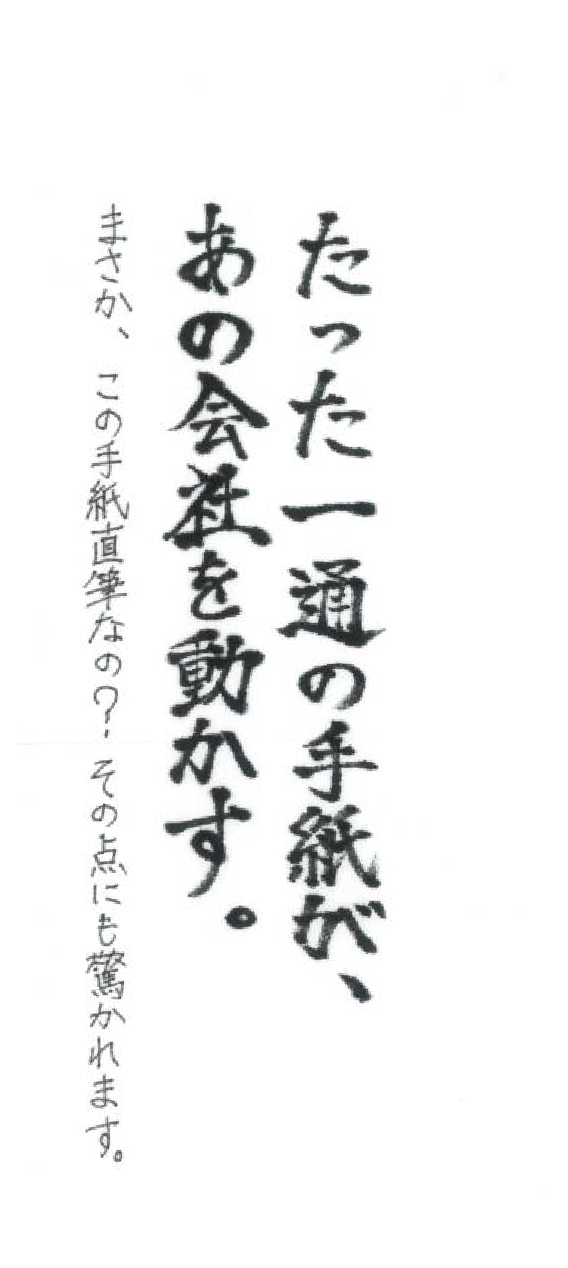 たった一通の手紙が、
あの会社を動かす。
まさか、この手紙直筆なの？その点にも驚かれます。